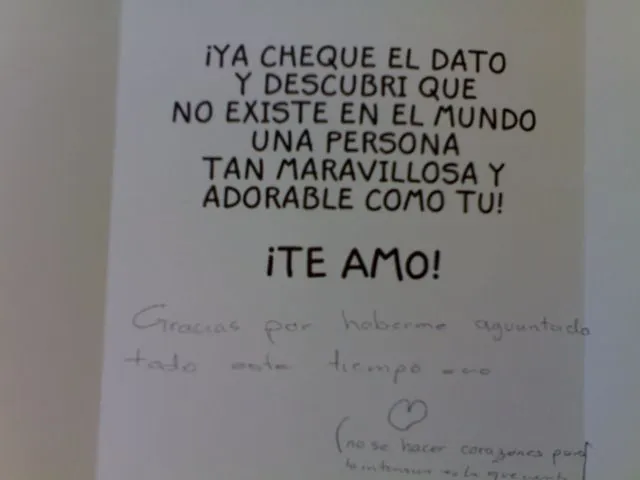 ¡YA CHEQUE EL DATO
Y DESCUBRI QUE
NO EXISTE EN EL MUNDO
UNA PERSONA
TAN MARAVILLOSA Y
ADORABLE COMO TU!
¡TE AMO!
Gracias por haberme aguantado
todo este tiempo
(no se hacer corazones pero
la es la que